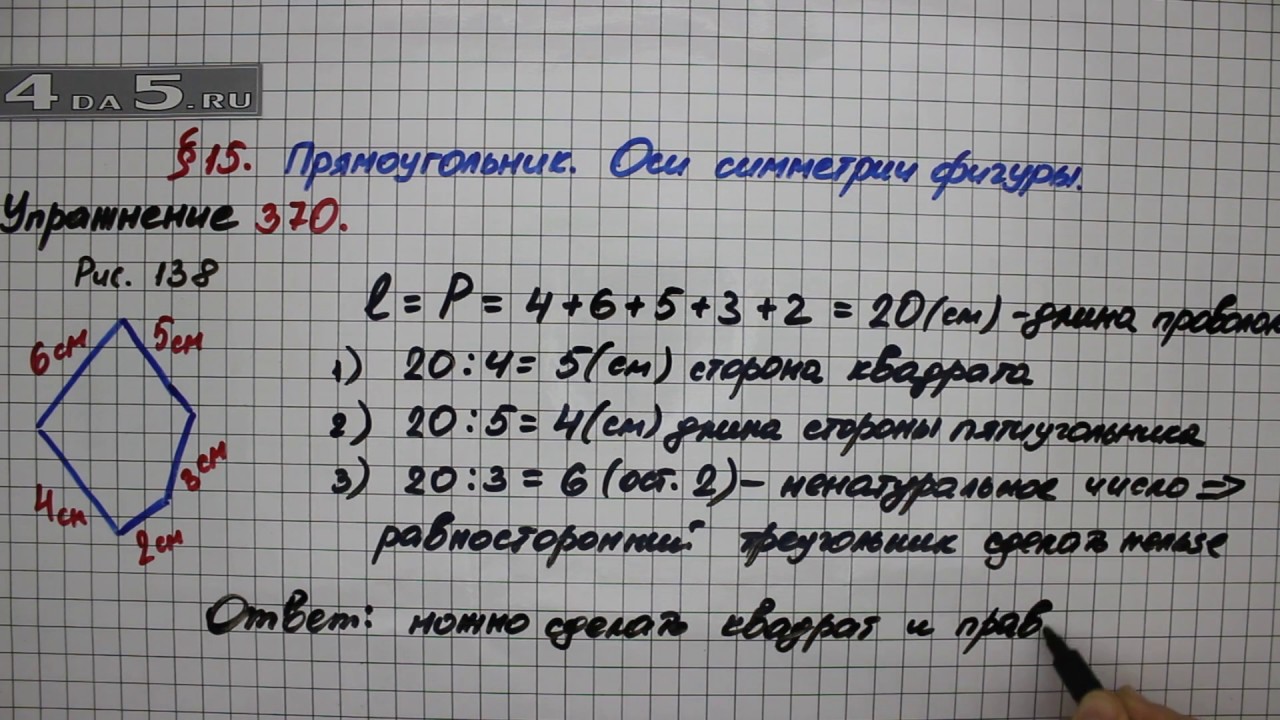 4DA5.RU
§15. Прямоугольник. Оси симметрии фигуры.
Упражнение 370.
Рис. 138
6см
5см
3см
4см
2см
l = P = 4+6+5+3+2 = 20(см) -длина проволок
1) 20:4= 5(см) сторона квадрата
2) 20:5= 4(см) длина стороны пятиугольника
3) 20:3= 6 (ост. 2) - ненатуральное число =>
равносторонний треугольник сделать нельзя
Ответ: можно сделать квадрат и прав